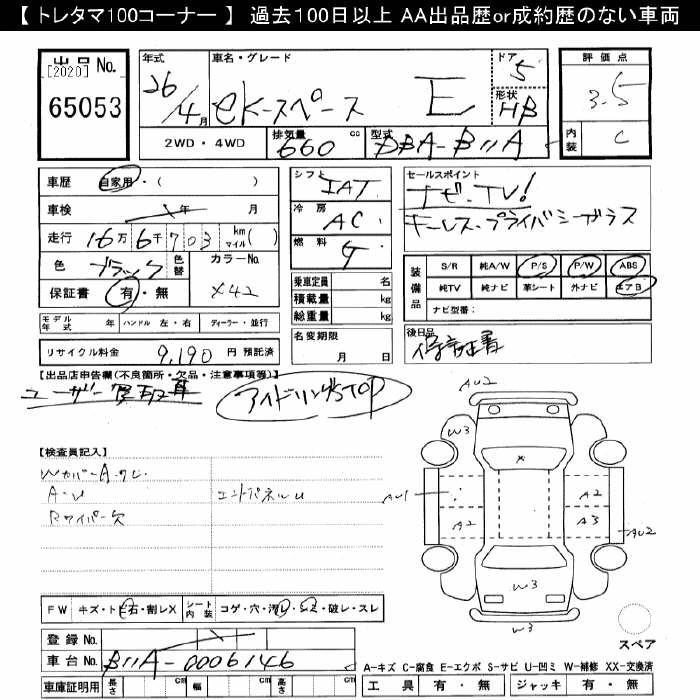 【 トレタマ100コーナー 】 過去100日以上 AA出品歴or成約歴のない車両
出品 No.
[2020]
65053
年式
26/4月
車名・グレード
eKースペース E
ドア
5
形状
HB
評価点
3.5
内装
C
2WD・4WD
排気量
660
cc
型式
DBA-B11A
車歴
自家用・( )
車検
年 月
走行
16万6千703
km マイル( )
色
ブラック
色替
カラーNo.
X42
保証書
有・無
シフト
IAT
冷房
AC
燃料
G
乗車定員 名
積載量 kg
総重量 kg
セールスポイント
ナビ・TV!
キーレス・プライバシーガラス
装備品
S/R 純A/W P/S P/W ABS
純TV 純ナビ 革シート 外ナビ エアB
ナビ型番:
モデル年式 年 ハンドル 左・右 ディーラー・並行
リサイクル料金 9,190 円 預託済
名変期限
月 日
後日品
保証書
【出品店申告欄(不良箇所・欠品・注意事項等)】
ユーザー買取車
アイドリングSTOP
【検査員記入】
WカバーA・ワレ
A・U
エンドパネルU
Rワイパー欠
AU2
W3
×
AU1
A2
A2
A3
AU2
W3
W3
スペア
FW キズ・トビ石・割レX
シート内装
コゲ・穴・汚レ・シミ・破レ・スレ
登録 No.
車台 No.
B11A-0006146
車庫証明用 長さ cm 幅 cm 高さ cm
A-キズ C-腐食 E-エクボ S-サビ U-凹ミ W-補修 XX-交換済
工具 有・無 ジャッキ 有・無